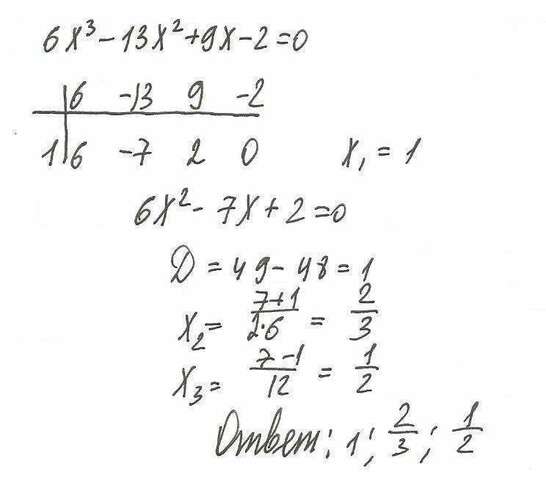 6x³ - 13x² + 9x - 2 = 0
6 -13 9 -2
1 6 -7 2 0 x₁ = 1
6x² - 7x + 2 = 0
D = 49 - 48 = 1
x₂ = (7+1)/(2·6) = 2/3
x₃ = (7-1)/12 = 1/2
Ответ: 1; 2/3; 1/2